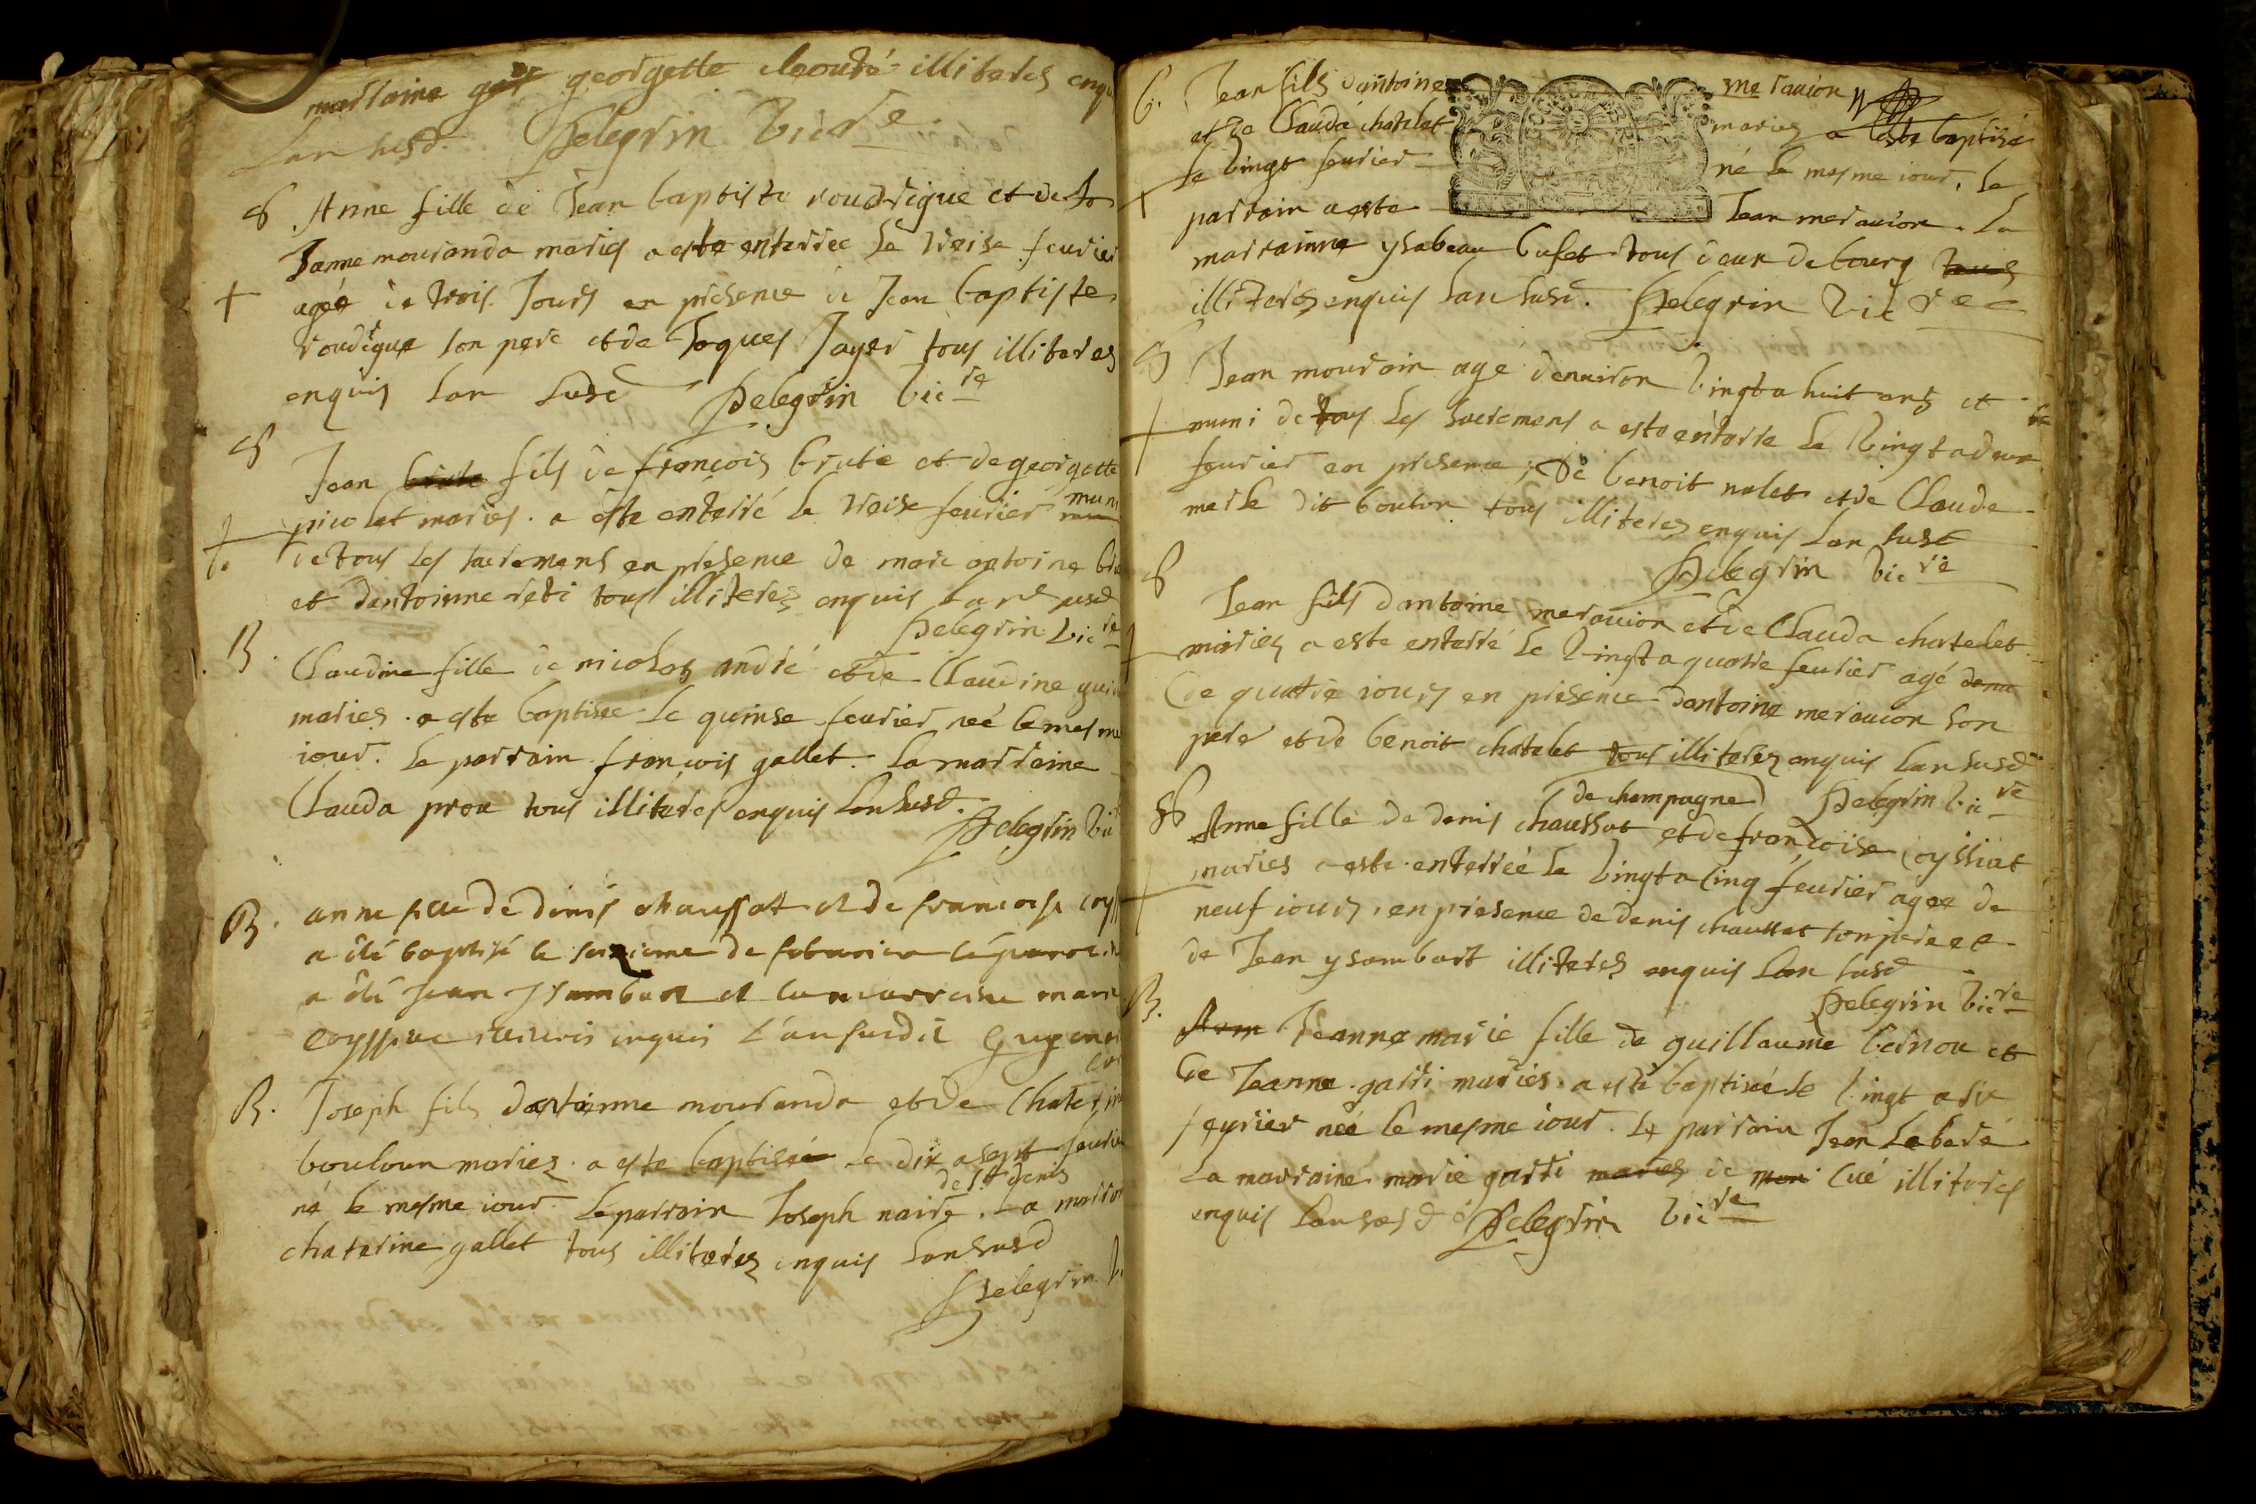 marraine georgette cloudé illiteres enqu
lan susd. Pelegrin vicre
S Anne fille de Jean baptiste roudrigue et de
Janne mouranda mariés a este enterree le treise feurier
agée de trois Jours en presence de Jean baptiste
roudigue son pere et de Jaques Jayer tous illiteres
enquis lan susd Pelegrin vicre
S
Jean brute fils de francois brutie et de georgette
picolet mariés a este enterré le treise feurier muni
de tous les sacremens en presence de marc antoine
et dantoinne reti tous illiteres enquis lan susd
Pelegrin vicre
B. Claudine fille de nicolas andré et de Claudine
mariés a este baptisee le quinse feurier neé le mesme
iour. le parrain françois gallet. la marraine
Clauda prou tous illiteres enquis lan susd.
Pelegrin vic
B. anne fille de denis chaussat et de francoise
a été baptisé le seizieme de le parrein
a été Jean Isambart et la marreine marie
coyssiat enquis l'an susdit
B. Joseph fils dantoinne mouranda et de Chaterine
bouloun mariez a este baptisée le dix a sept feurier
de st denis
né le mesme iour Le parrain Joseph naire. La marrai
chaterine gallet tous illiteres enquis lan susd
Pelegrin
B. Jean fils dantoine merauion
et de Clauda chatelet mariez a este baptisé
le vingt feurier né le mesme iour, le
parrain a este Jean merauion. La
marrainne ysabeau bufet tous deux de bourg tous
illiteres enquis lan susd. Pelegrin vicre
S Jean mourain agé denuiron vingt a huit ans et
muni de tous les sacremens a este enterre le vingt a deux
feurier en presence de benoit nalet et de Claude
merle dit bouton tous illiteres enquis lan susd
Pelegrin vicre
S
Jean fils dantoine merauion et de Clauda chatelet
mariez a este enterré le vingt a quatre feurier agé
de quatre iours en presence dantoine merauion son
pere et de benoit chatelet tous illiteres enquis lan susd
de champagne Pelegrin vicre
S Anne fille de denis chaussat et de françoise coyssiat
mariés a este enterreé le vingt a cinq feurier agee de
neuf iours, en presence de denis chaussat son pere et
de Jean ysambart illiteres enquis lan susd
Pelegrin vicre
B. Jeanne marie fille de guillaume bernou et
de Jeanne garri mariés a este baptisée le vingt a six
feurier neé le mesme iour. Le parrain Jean
La marraine marie garri mariés de cué illiteres
enquis lan susd Pelegrin vicre